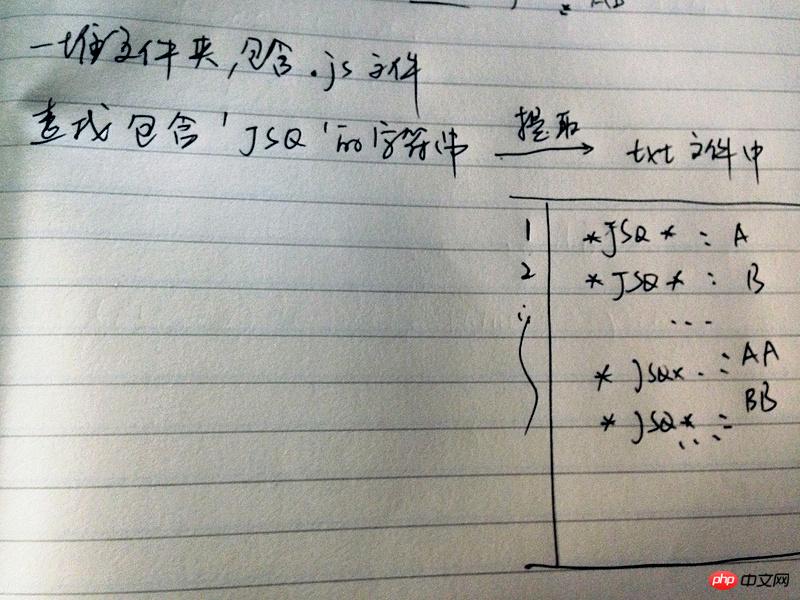 一堆文件夹,包含.js文件
查找包含'JSQ'的字符串 提取 txt文件中
1 *JSQ* : A
2 *JSQ* : B
...
* JSQ* : AA
* JSQ* : BB
...
php 中文网